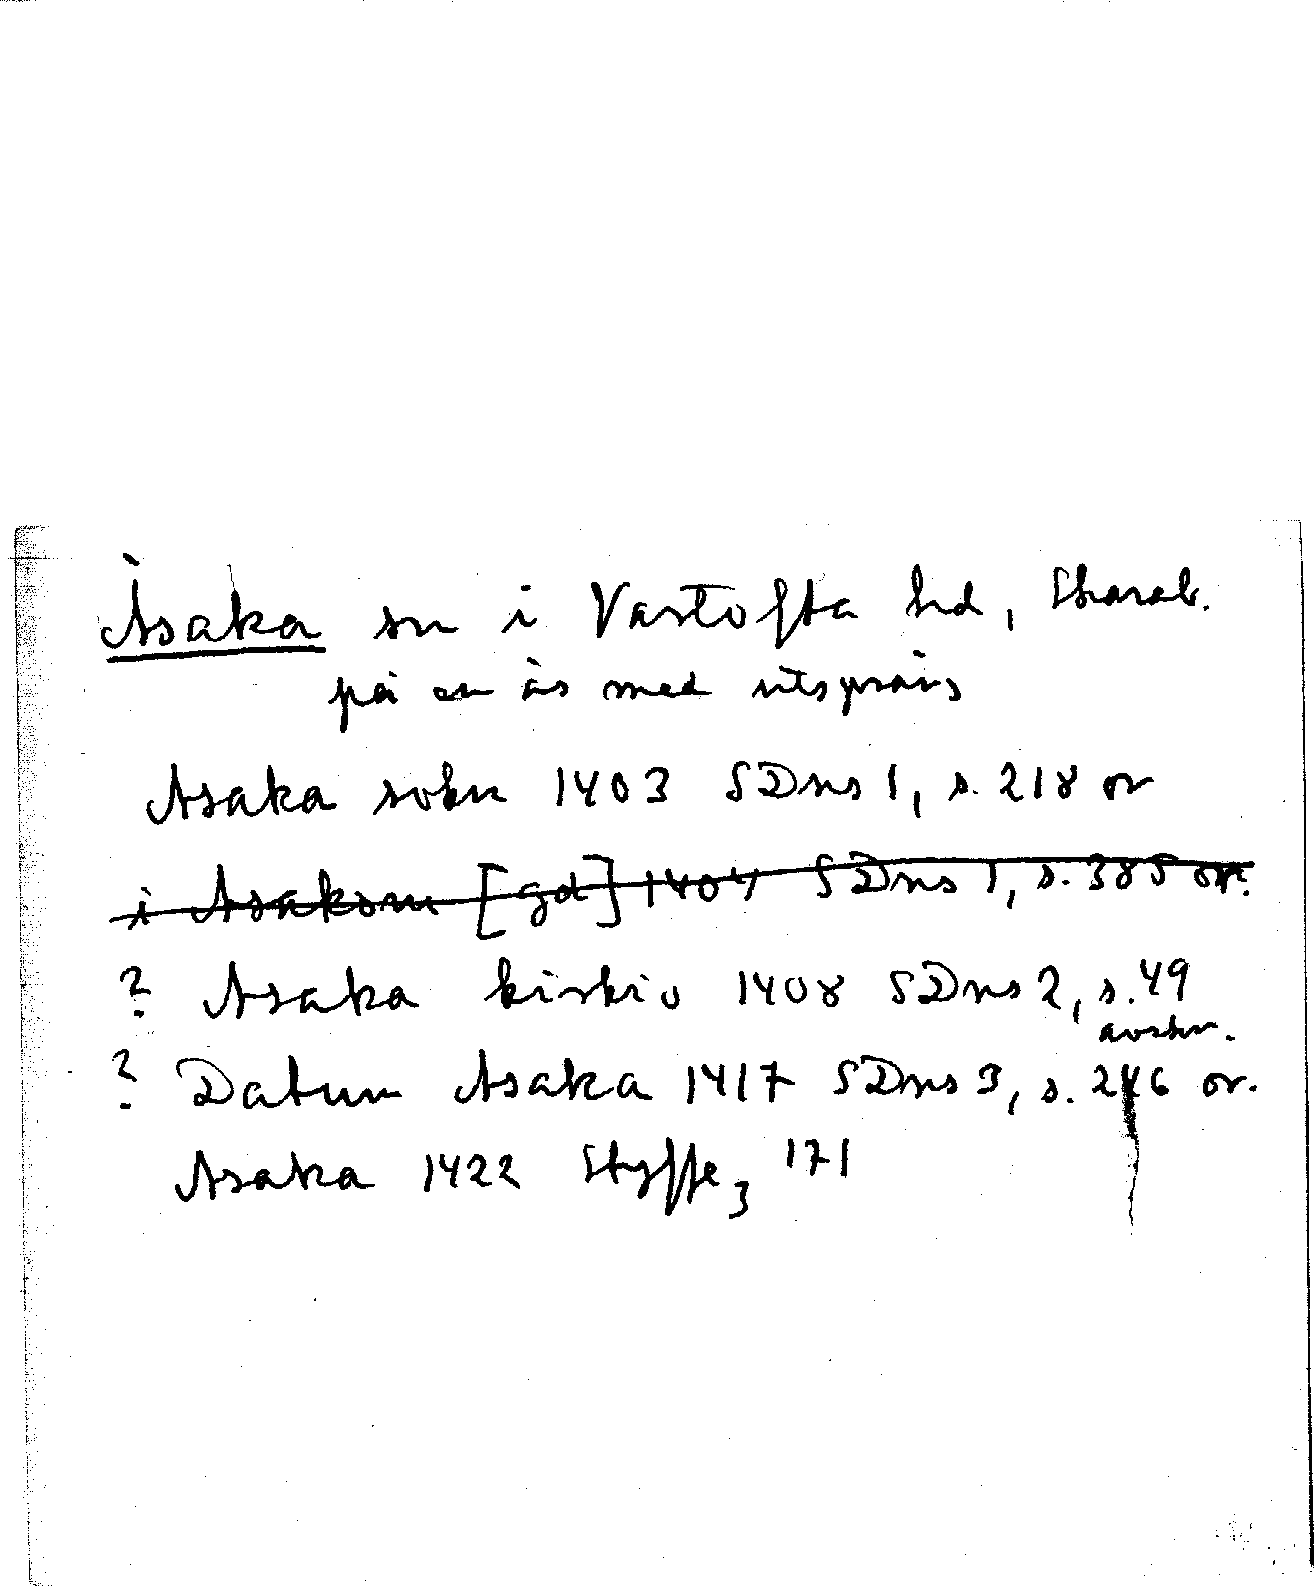 Åsaka sn i Vartofta hd, Skarab.
på en ås med utsprång
Asaka sokn 1403 SDns 1, s. 218 or
i Asakom [gd] 1404 SDns 1, s. 385 or.
? Asaka kirkio 1408 SDns 2, s. 49
avskr.
? Datum Asaka 1417 SDns 3, s. 246 or.
Asaka 1422 Styffe, 171